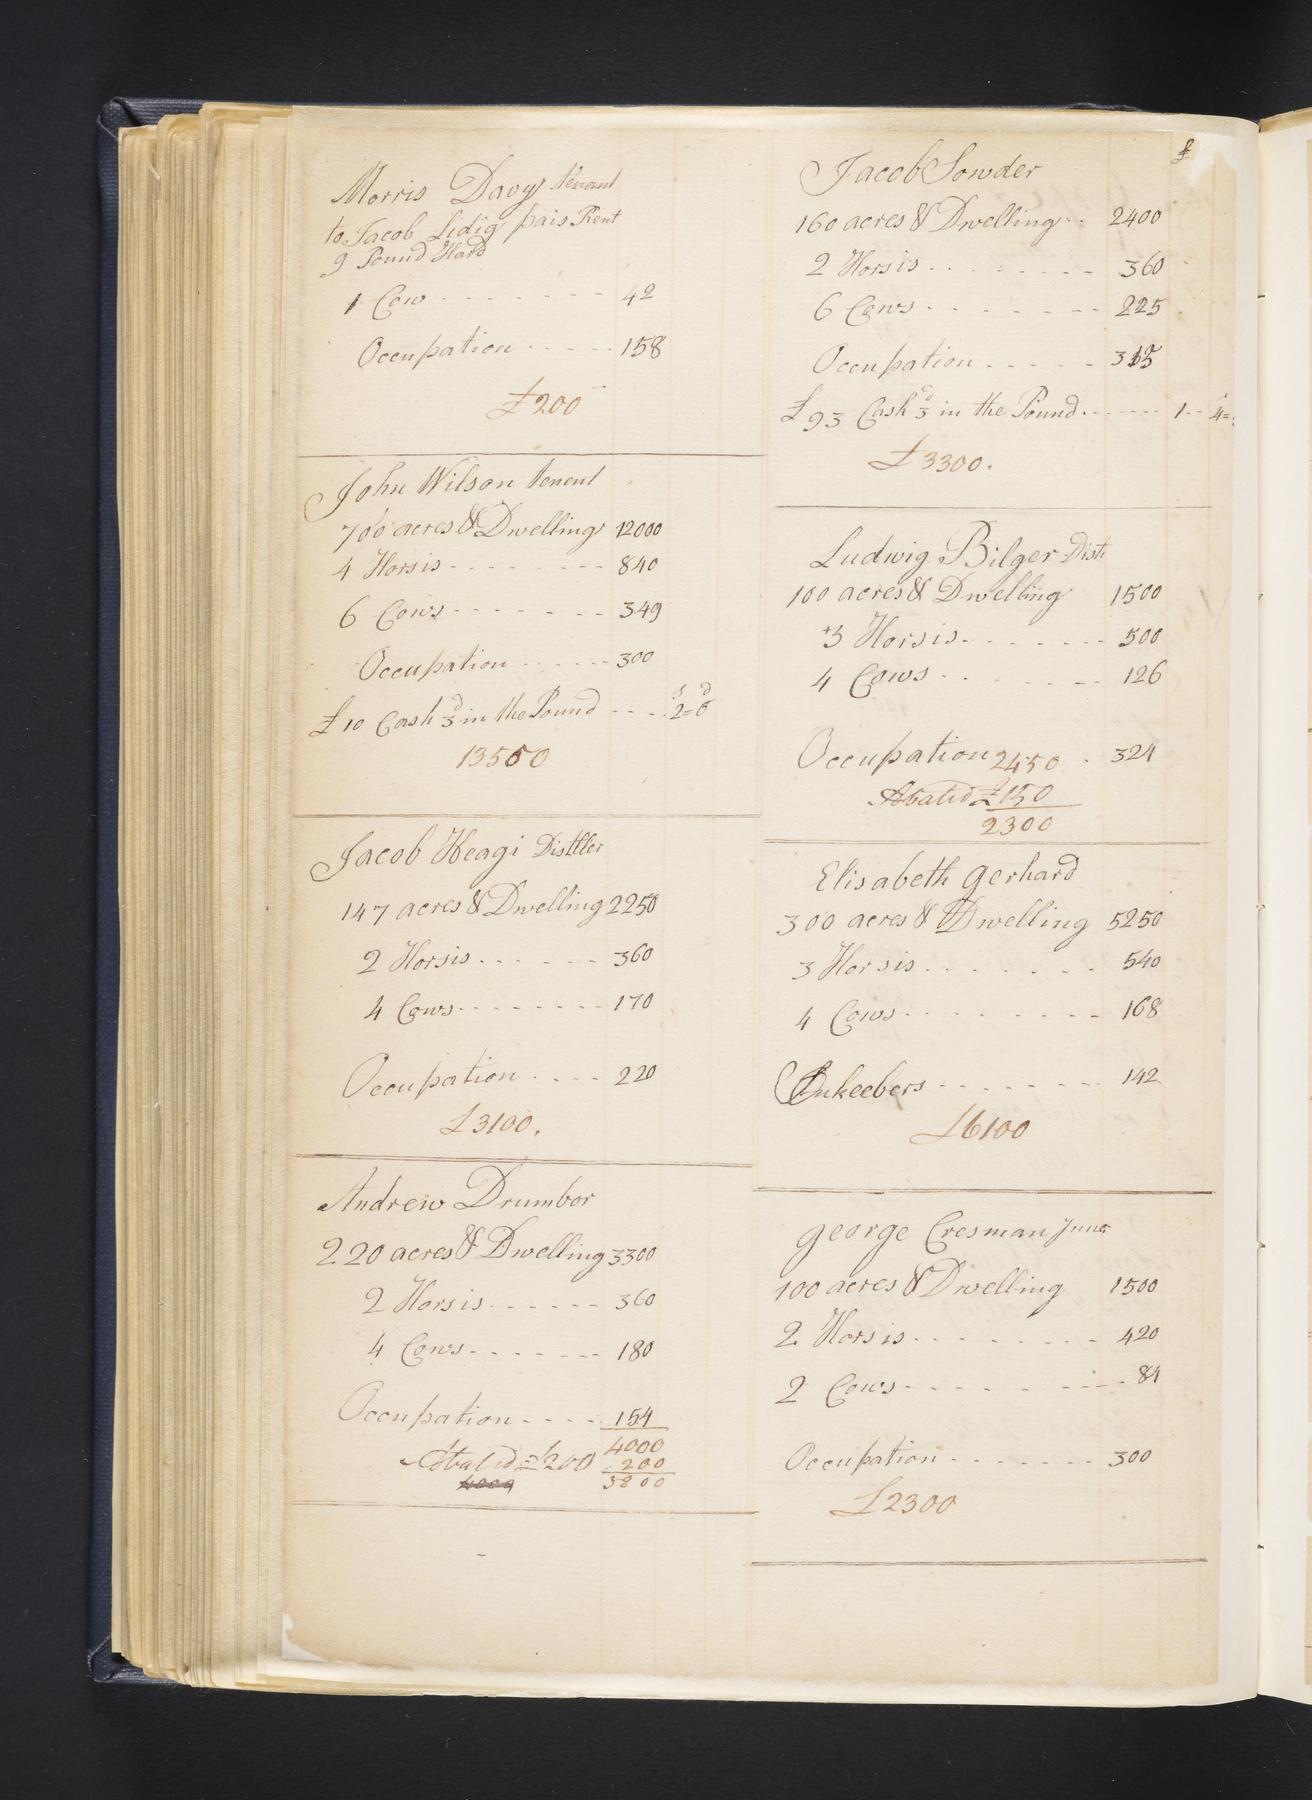 Morris Davy tenant
to Jacob Lidig pais Rent
9 Pound Hard
1 Cow - - - - - - - - 42
Occupation - - - - - 158
£200
John Wilson tenent
700 acres & Dwelling 12000
4 Horsis - - - - - - - - 840
6 Cows - - - - - - - 349
Occupation - - - - - - 300
£10 Cash 3d in the Pound - - - - 2s=6d
13500
Jacob Heagi Distller
147 acres & Dwelling 2250
2 Horsis - - - - - - 360
4 Cows - - - - - - - - 170
Occupation - - - - 220
£3100.
Andrew Drumbor
220 acres & Dwelling 3300
2 Horsis - - - - - - 360
4 Cows - - - - - - - 180
Occupation - - - - 154
4000
Abatid £200 200
4000 3800
£
Jacob Sowder
160 acres & Dwelling - - 2400
2 Horsis - - - - - - - - - 360
6 Cows - - - - - - - - 225
Occupation - - - - - 315
£93 Cash 3d in the Pound - - - - - - 1 - - 4=
£3300.
Ludwig Bilger Dist
100 acres & Dwelling 1500
3 Horsis - - - - - - - - 500
4 Cows - - - - - - - - 126
Occupation 2450 - 324
Abatid £150
2300
Elisabeth Gerhard
300 acres & Dwelling 5250
3 Horsis - - - - - - - 540
4 Cows - - - - - - - - - 168
Inkeebers - - - - - - - - 142
£6100
George Cresman Junr
100 acres & Dwelling 1500
2 Horsis - - - - - - - - - 420
2 Cows - - - - - - - - 84
Occupation - - - - - - - 300
£2300